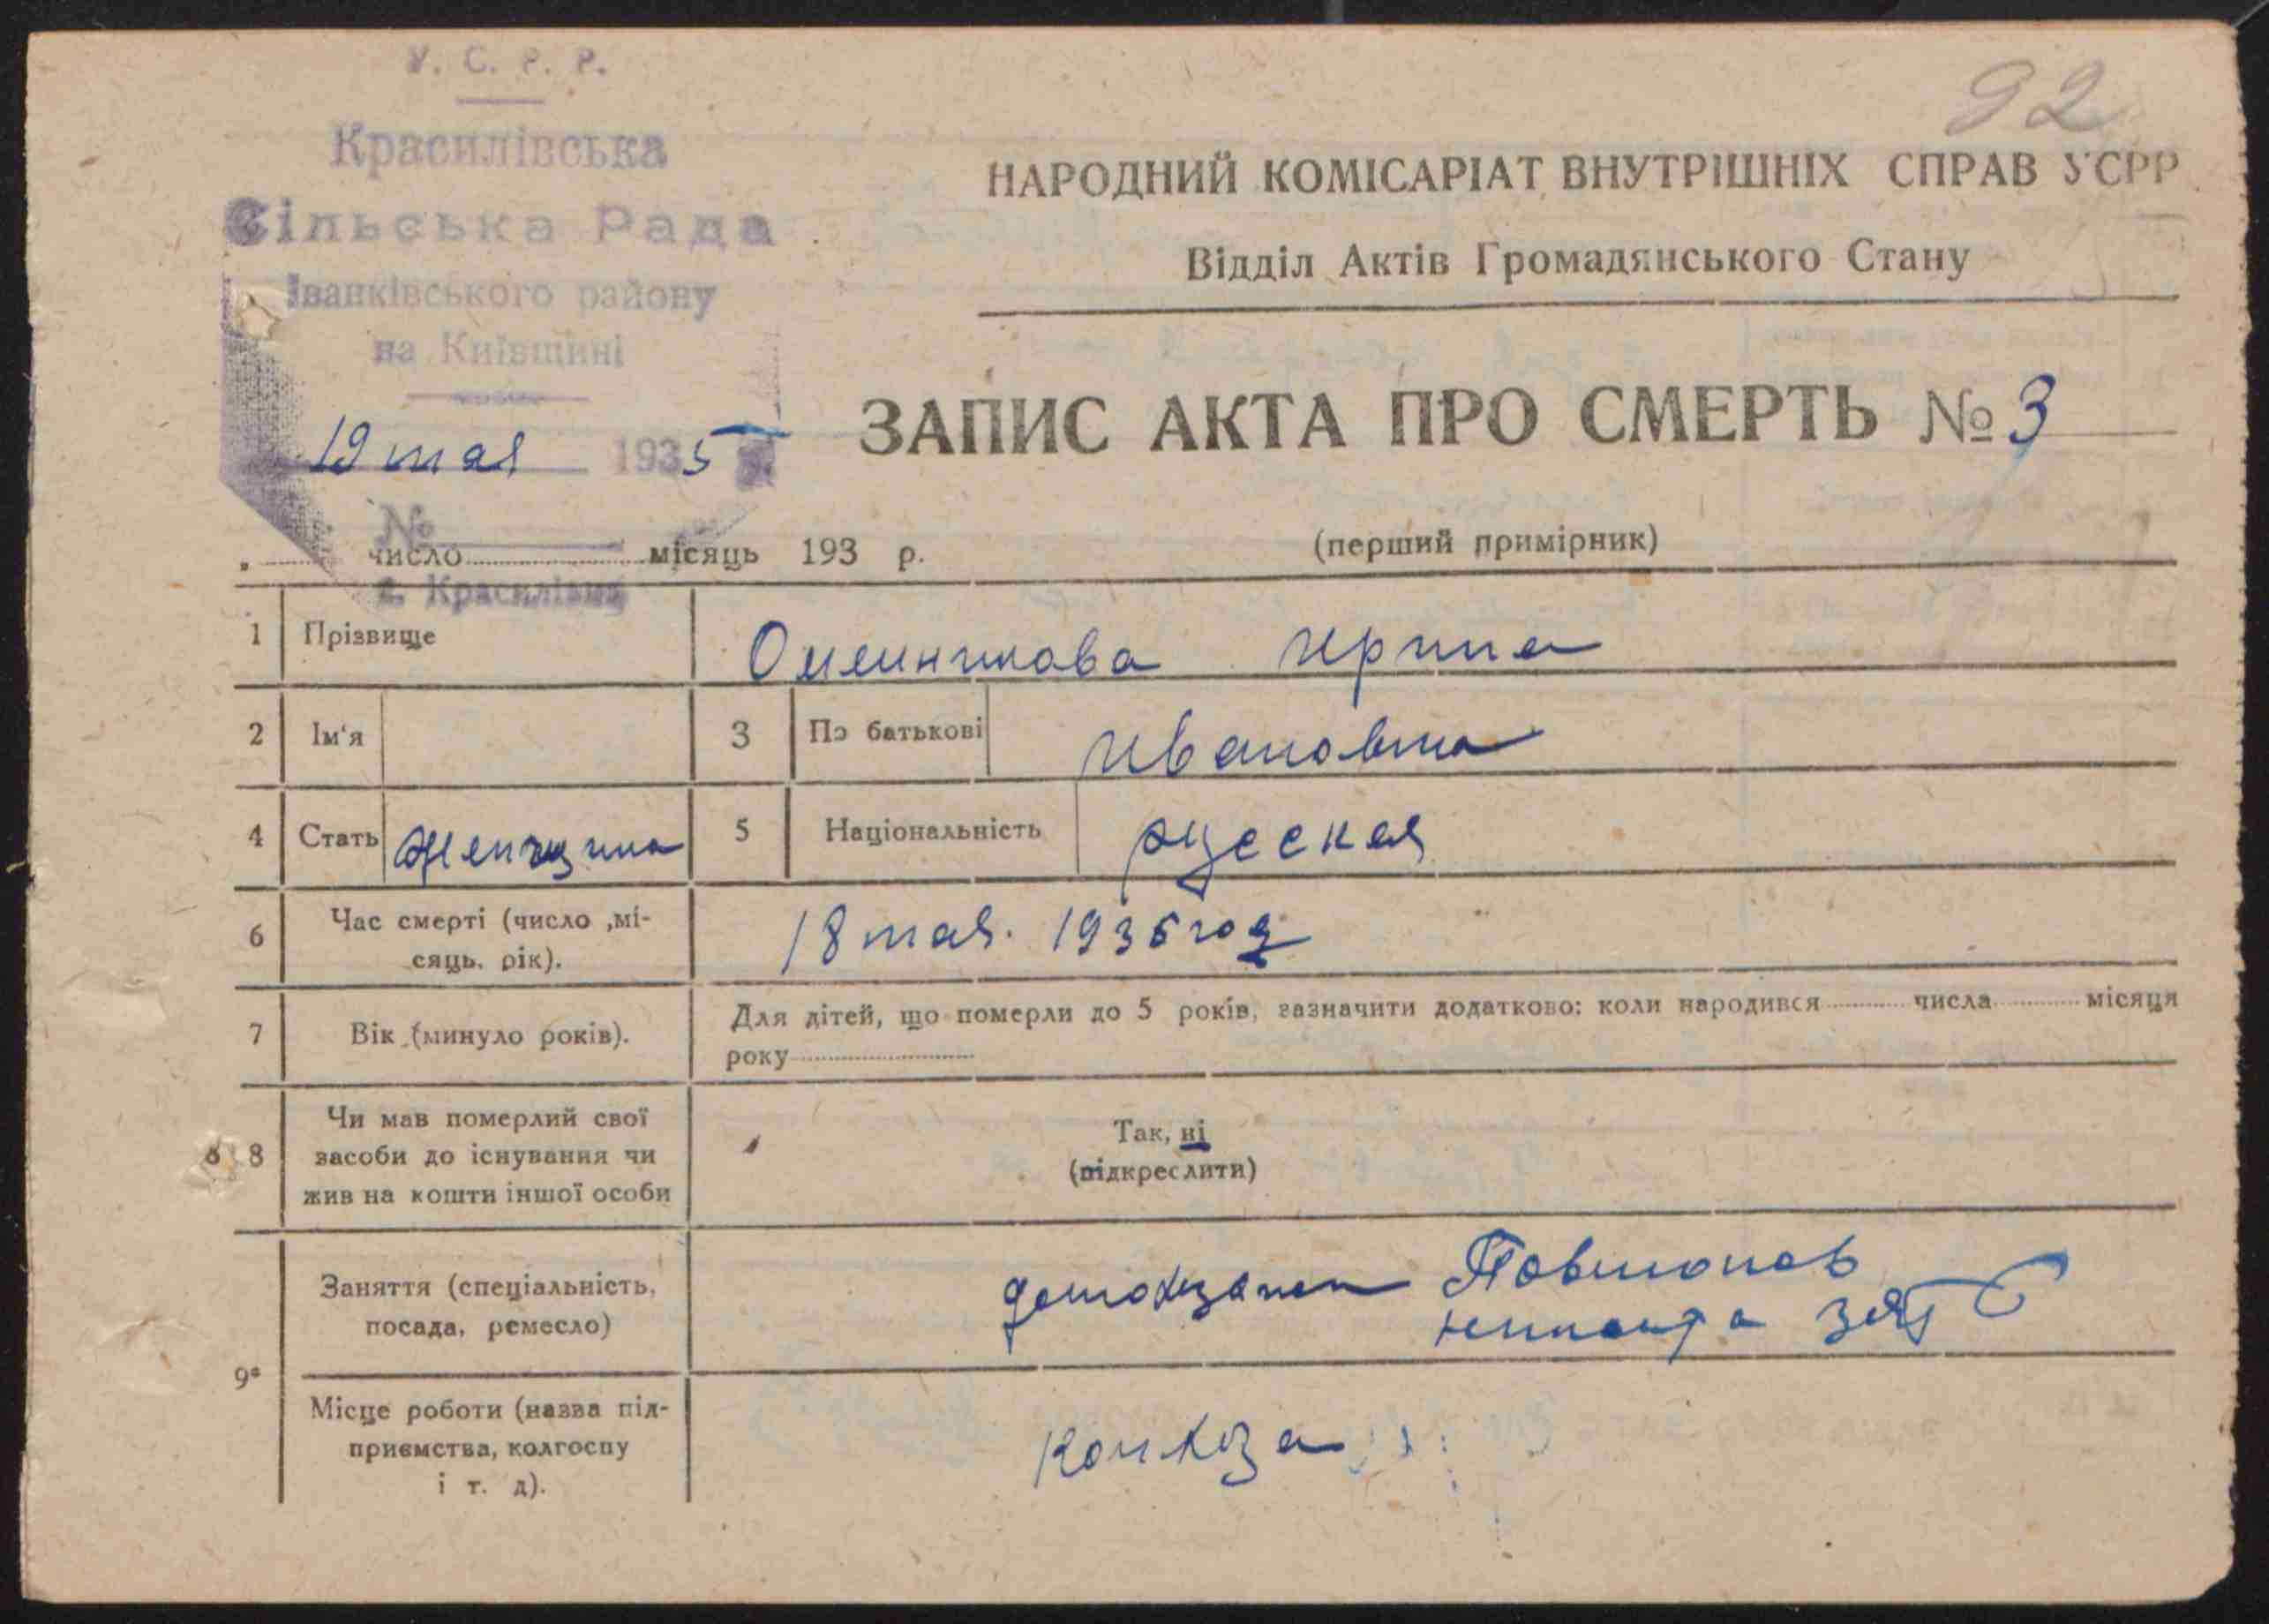 У. С. Р. Р.
92
Красилівська
Сільська Рада
Іванківського району
на Київщині
19 мая 1935 р.
№
с. Красилівка
НАРОДНИЙ КОМІСАРІАТ ВНУТРІШНІХ СПРАВ УСРР
Відділ Актів Громадянського Стану
ЗАПИС АКТА ПРО СМЕРТЬ № 3
„ число місяць 193 р.
(перший примірник)
1 Прізвище Ирина
2 Ім'я 3 По батькові Ивановна
4 Стать женщина 5 Національність русская
6 Час смерті (число ,мі-
сяць, рік). 18 мая. 1935 год
7 Вік (минуло років). Для дітей, що померли до 5 років, зазначити додатково: коли народився числа місяця
року
8 Чи мав померлий свої
засоби до існування чи
жив на кошти іншої особи
Так, ні
(підкреслити)
9а Заняття (спеціальність,
посада, ремесло)
зят
Місце роботи (назва під-
приємства, колгоспу
і т. д).